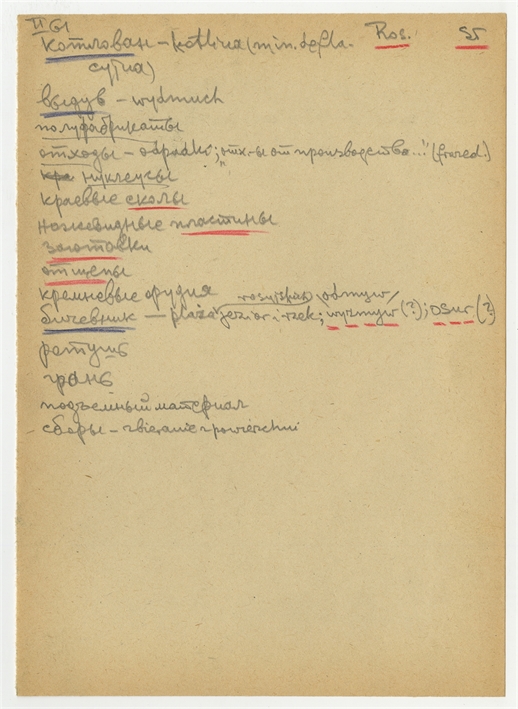 II 61
Ros. SS
котлован – kotlina (m.in. defla-
cyjna)
выдув – wydmuch
полуфабрикаты
отходы – odpadki; „отх-ы от производства..." (
нуклеусы
краевые сколы
ножевидные пластины
заготовки
отщепы
кремневые орудия
бичевник – plaża jezior i rzek; wyrzmyw (?); osur (?)
odmyw/
ретушь
грань
подъемный материал
сборы – zbieranie z powierzchni